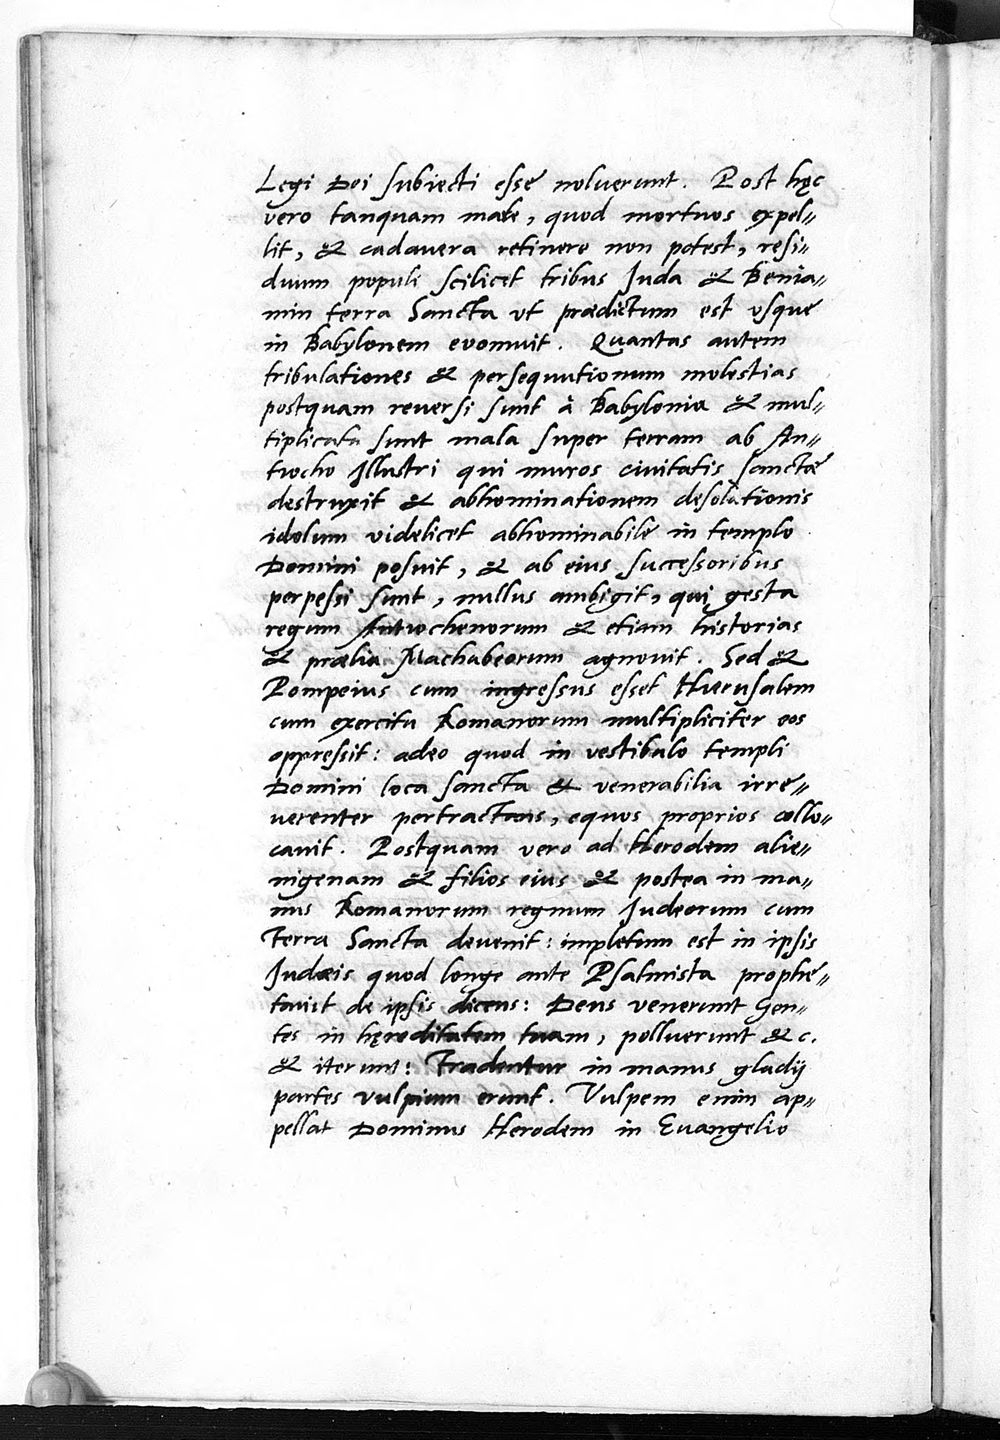 Legi Dei subiecti esse noluerunt. Post hęc
vero tanquam mare, quod mortuos expel=
lit, & cadauera retinere non potest, resi=
duum populi scilicet tribus Juda & Benia=
min terra Sancta vt prædictum est vsque
in Babylonem euomuit. Quantas autem
tribulationes & persequutionum molestias
postquam reuersi sunt à Babylonia & mul=
tiplicata sunt mala super terram ab An=
tiocho Illustri qui muros ciuitatis sanctæ
destruxit & abhominationem desolationis
idolum videlicet abhominabile in templo
Domini posuit, & ab eius successoribus
perpessi sunt, nullus ambigit, qui gesta
regum Antiochenorum & etiam historias
& prælia Machabeorum agnouit. Sed &
Pompeius cum ingressus esset Hierusalem
cum exercitu Romanorum multipliciter eos
oppressit: adeo quod in vestibulo templi
Domini loca sancta & venerabilia irre=
uerenter pertractans, equos proprios collo=
cauit. Postquam vero ad Herodem alie=
nigenam & filios eius & postea in ma=
nus Romanorum regnum Judeorum cum
Terra Sancta deuenit: impletum est in ipsis
Judæis quod longe ante Psalmista prophe=
tauit de ipsis dicens: Deus venerunt Gen=
tes in hęreditatem tuam, polluerunt & c.
& iterum: Tradentur in manus gladij
partes vulpium erunt. Vulpem enim ap=
pellat Dominus Herodem in Euangelio